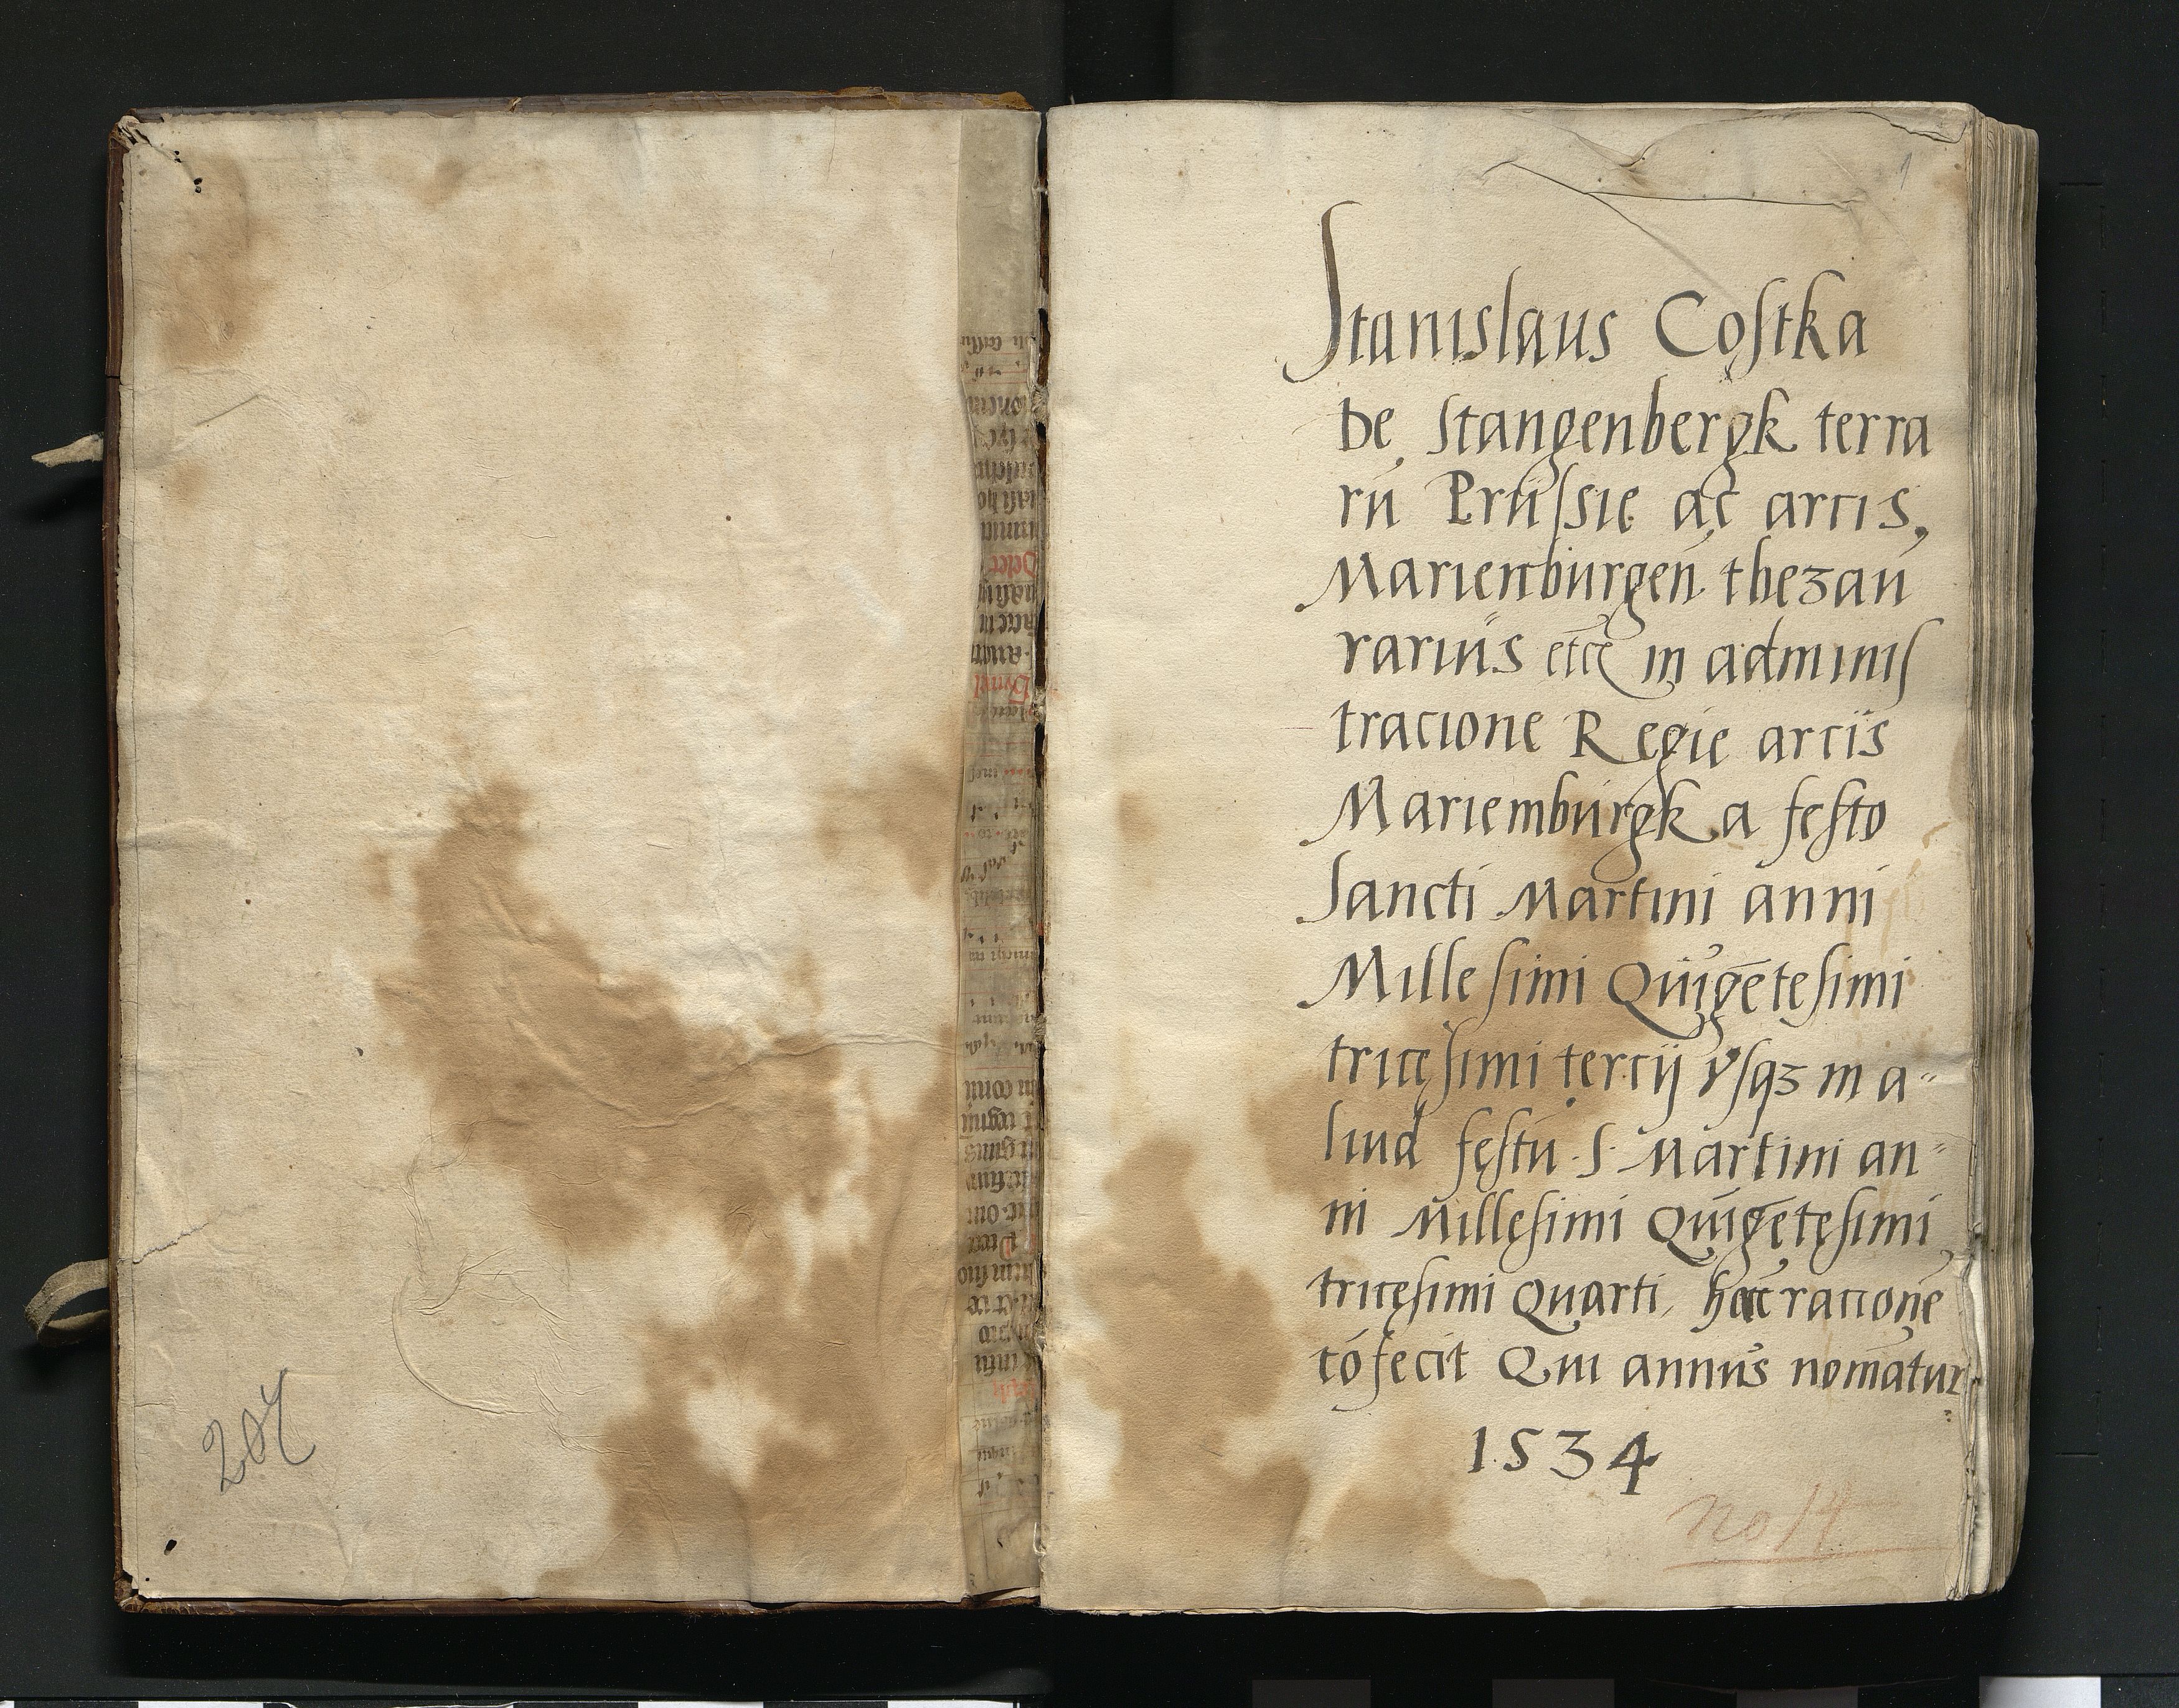 204
1
Stanislaus Costka
De Stangenbergk terra
rū Prussie ac arcis
Marienburgeñ thezau
rarius etcẽ in adminis
tracione Regie arcis
Mariemburgk a festo
Sancti Martini anni
Millesimi Quīgētesimi
tricesimi tercij vsqꝫ in a⸗
liud festū S. Martini an⸗
ni Millesimi Quīgētesimi
tricesimi Quarti, hãc racionē
cō fecit Qui annus nomātur
1534
No 14